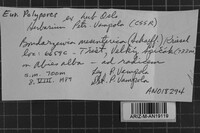 Eur. Polypores ex hub Dels
Herbarium Petr Vampola (CSSR)
Bondarzewia mesenterica (Schaeff.) Kreisel
loc: 6659c - Třešť, Velký Špičák (733m)
in Abies alba - ad radicem
a.m. 700m leg. P. Vampola
8.VIII.1989 det. P. Vampola
AN018294
ARIZ-M-AN19119